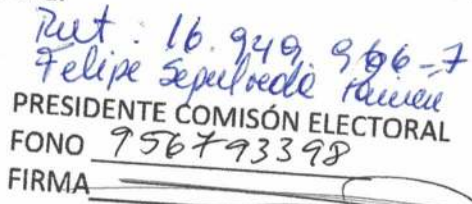 Rut: 16.949.966-7
Felipe Sepulveda
PRESIDENTE COMISÓN ELECTORAL
FONO 956793398
FIRMA